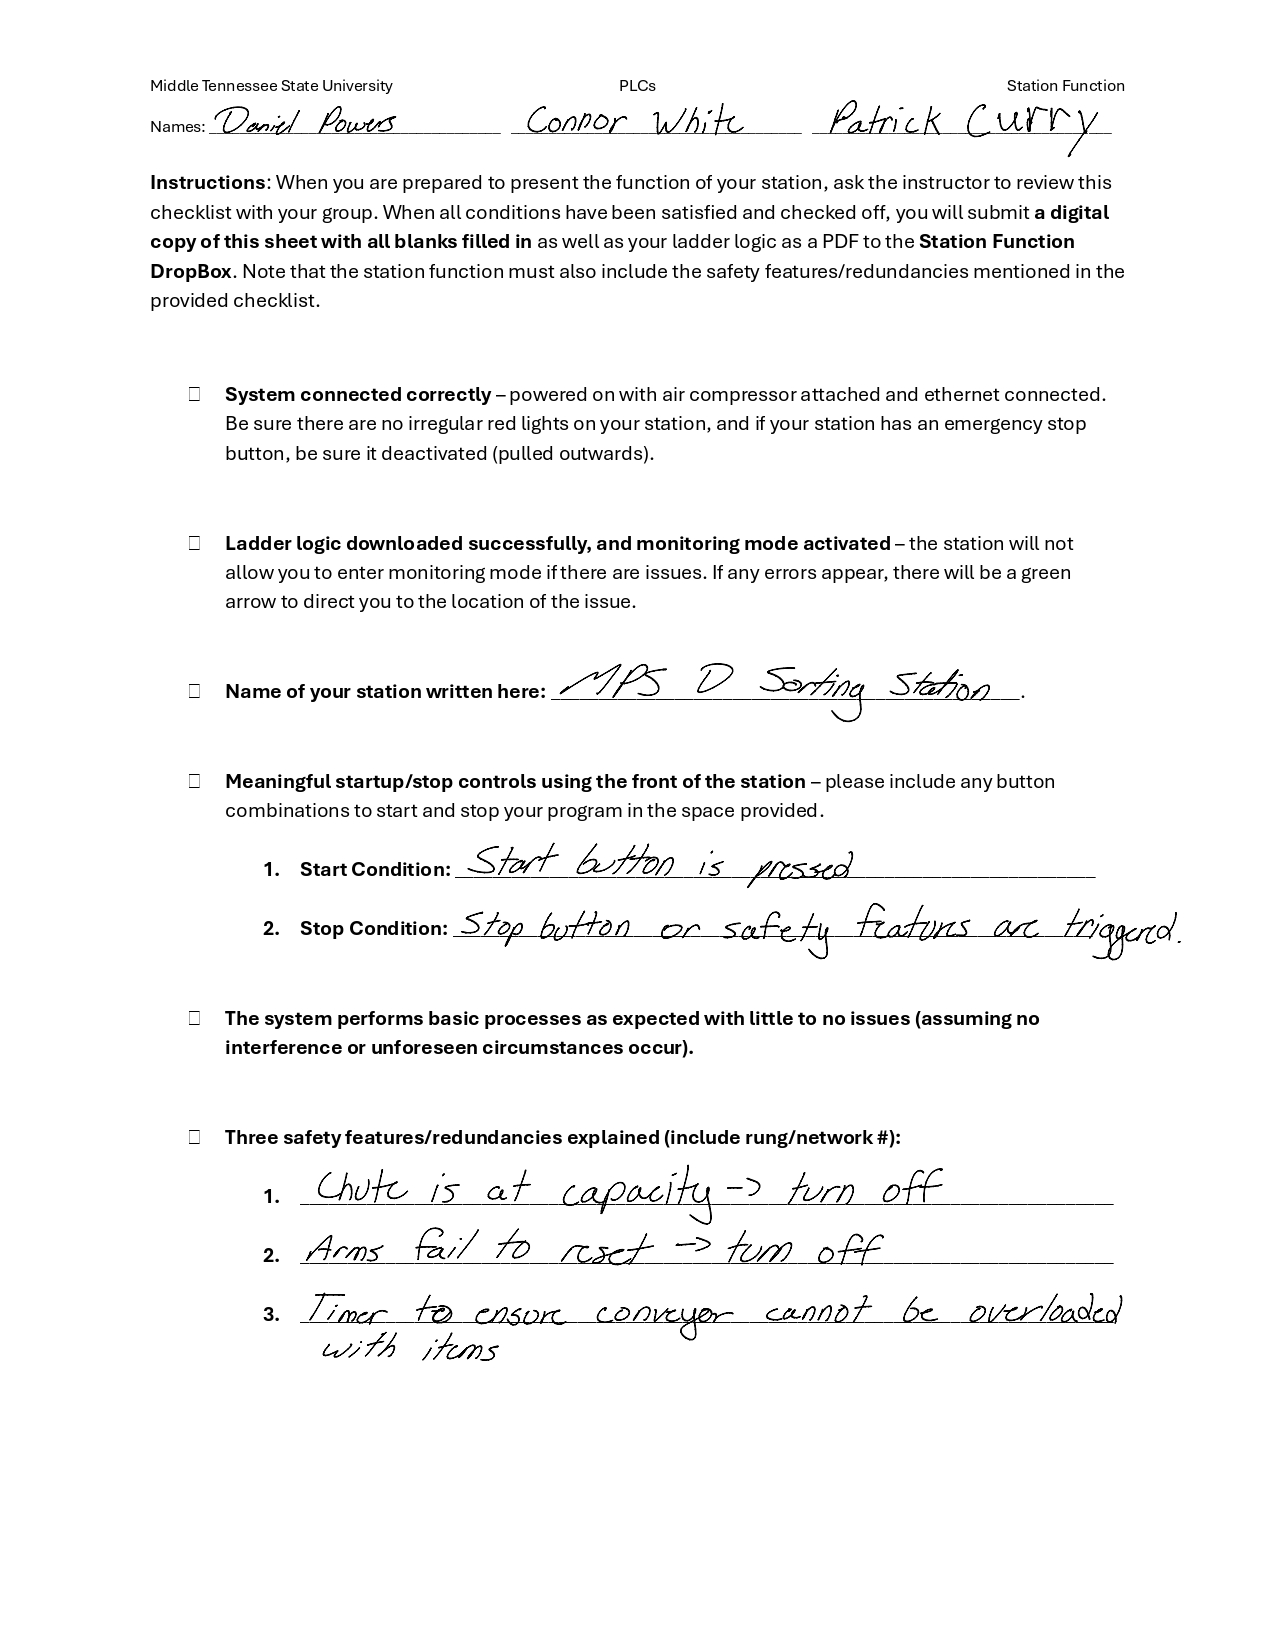 Middle Tennessee State University PLCs Station Function
Names: Daniel Powers Connor White Patrick Curry
Instructions: When you are prepared to present the function of your station, ask the instructor to review this
checklist with your group. When all conditions have been satisfied and checked off, you will submit a digital
copy of this sheet with all blanks filled in as well as your ladder logic as a PDF to the Station Function
DropBox. Note that the station function must also include the safety features/redundancies mentioned in the
provided checklist.
☐ System connected correctly – powered on with air compressor attached and ethernet connected.
Be sure there are no irregular red lights on your station, and if your station has an emergency stop
button, be sure it deactivated (pulled outwards).
☐ Ladder logic downloaded successfully, and monitoring mode activated – the station will not
allow you to enter monitoring mode if there are issues. If any errors appear, there will be a green
arrow to direct you to the location of the issue.
☐ Name of your station written here: MPS D Sorting Station.
☐ Meaningful startup/stop controls using the front of the station – please include any button
combinations to start and stop your program in the space provided.
1. Start Condition: Start button is pressed
2. Stop Condition: Stop button or safety features are triggered.
☐ The system performs basic processes as expected with little to no issues (assuming no
interference or unforeseen circumstances occur).
☐ Three safety features/redundancies explained (include rung/network #):
1. Chute is at capacity -> turn off
2. Arms fail to reset -> turn off
3. Timer to ensure conveyor cannot be overloaded
with items